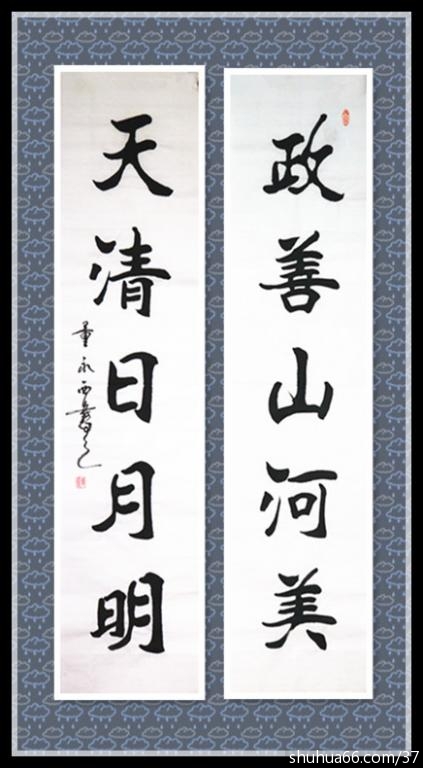 政善山河美
天清日月明
shuhua66.com/37